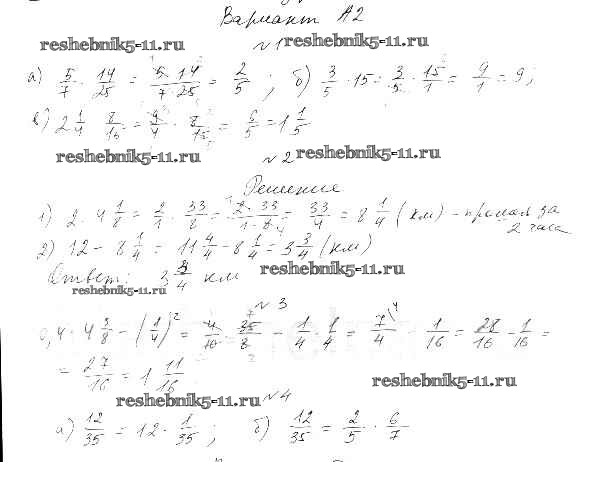 Вариант А2
reshebnik5-11.ru
№1 reshebnik5-11.ru
а) 5/7 · 14/25 = 5·14/7·25 = 2/5; б) 3/5 · 15 = 3/5 · 15/1 = 9/1 = 9;
в) 2 1/4 · 8/15 = 9/4 · 8/15 = 6/5 = 1 1/5
reshebnik5-11.ru №2 reshebnik5-11.ru
Решение
1) 2 · 4 1/8 = 2/1 · 33/8 = 2·33/1·8 = 33/4 = 8 1/4 (км) - прошла за
2 часа
2) 12 - 8 1/4 = 11 4/4 - 8 1/4 = 3 3/4 (км)
Ответ: 3 3/4 км reshebnik5-11.ru
reshebnik5-11.ru
№3
0,4 · 4 3/8 - (1/4)² = 4/10 · 35/8 - 1/4 · 1/4 = 7/4 - 1/16 = 28/16 - 1/16 =
= 27/16 = 1 11/16
reshebnik5-11.ru
reshebnik5-11.ru №4
а) 12/35 = 12 · 1/35; б) 12/35 = 2/5 · 6/7